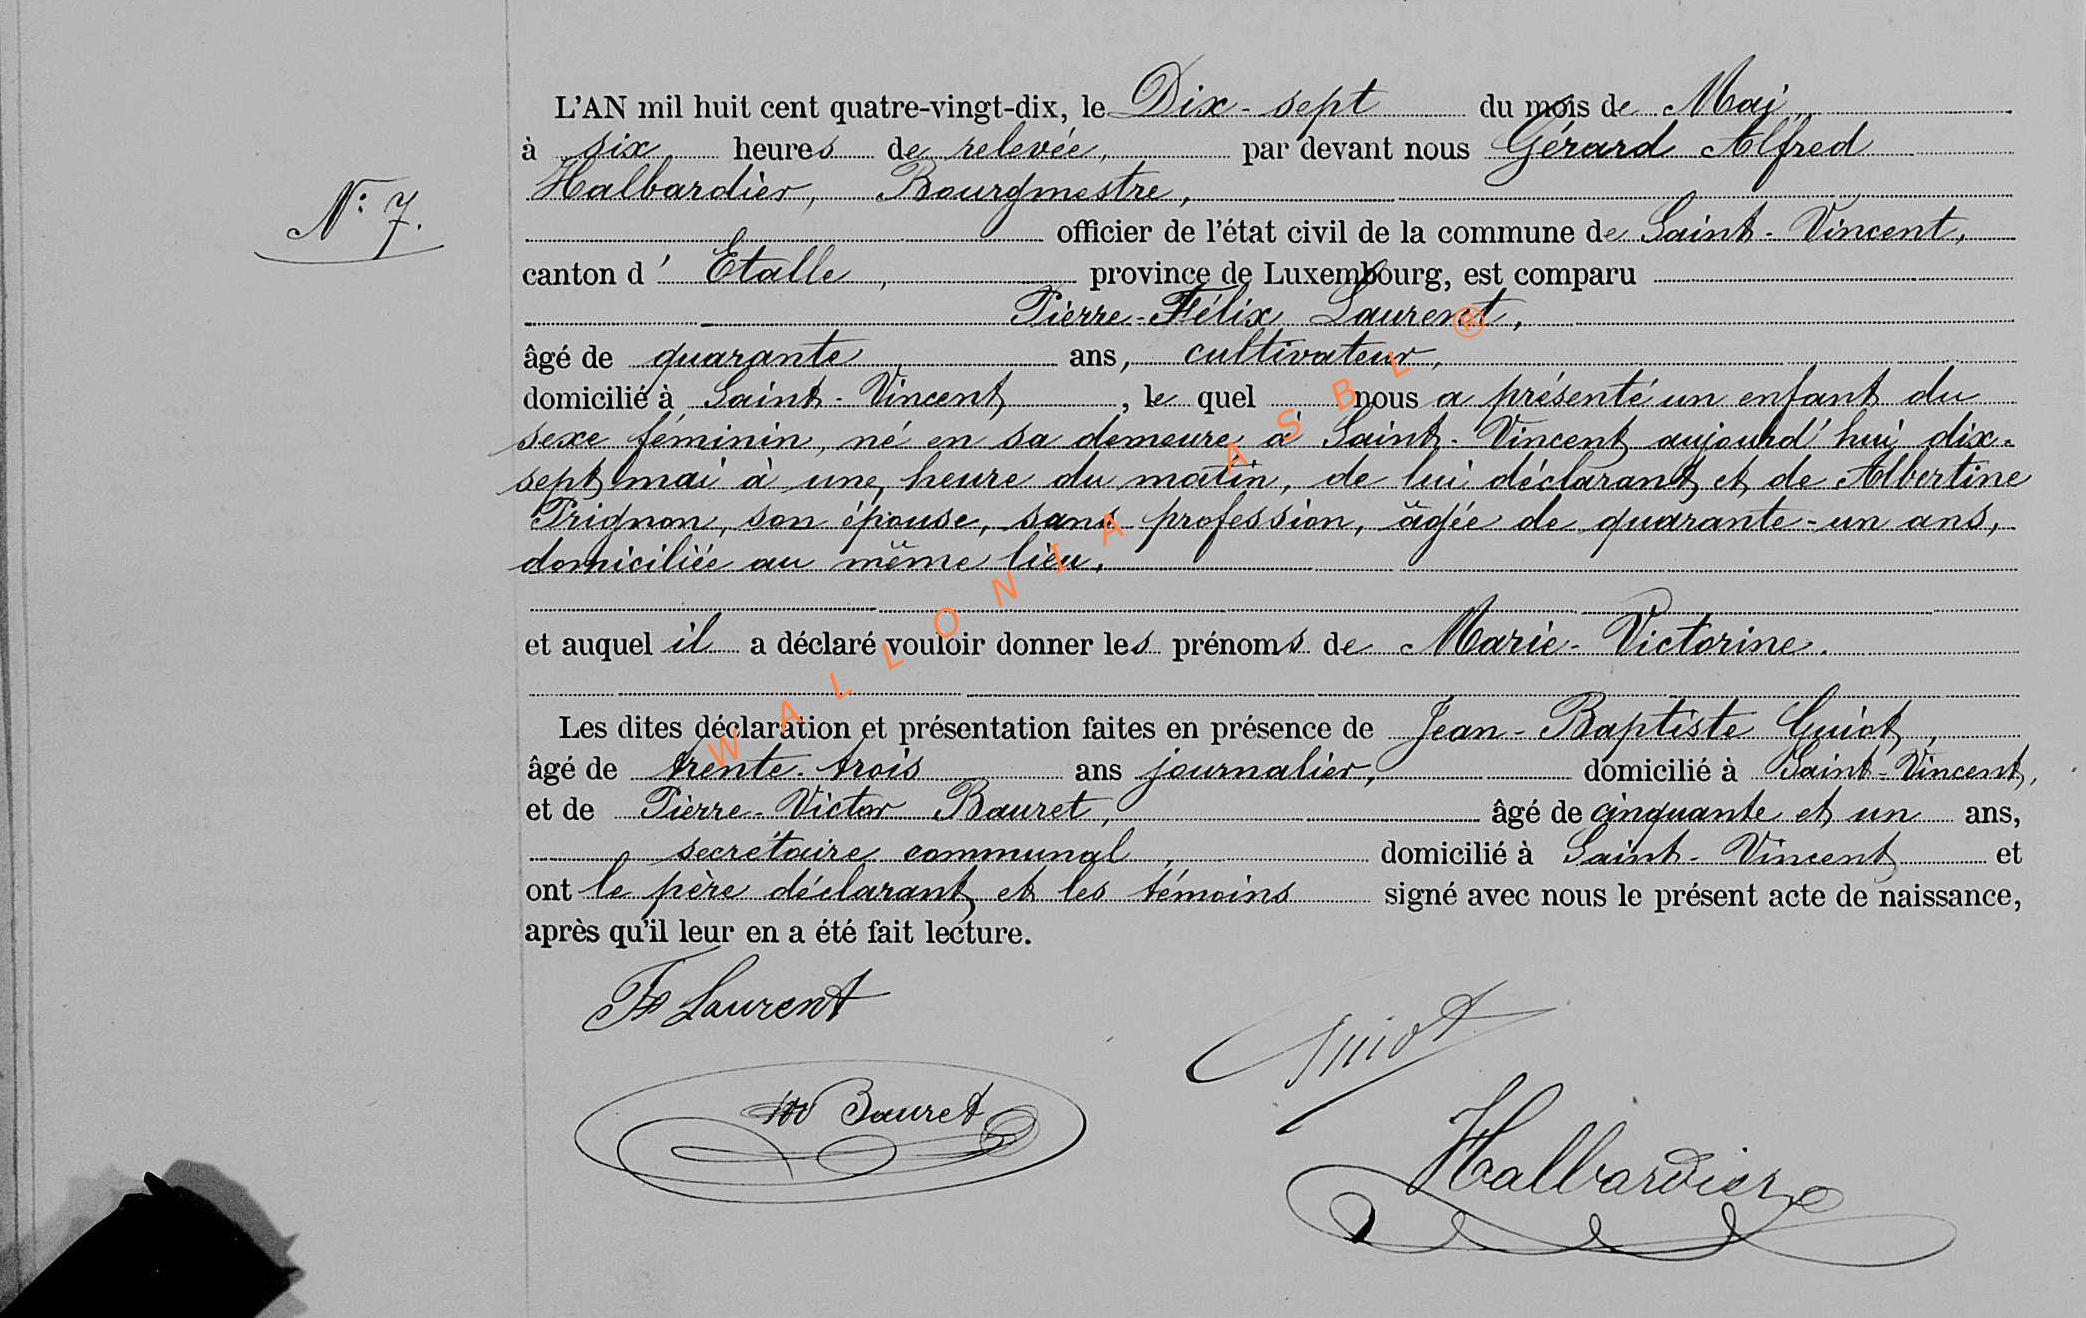 L'AN mil huit cent quatre-vingt-dix, le Dix-sept du mois de Mai
à six heures de relevée, par devant nous Gérard Alfred
Halbardier, Bourgmestre,
N° 7.
officier de l'état civil de la commune de Saint-Vincent,
canton d' Etalle, province de Luxembourg, est comparu
Pierre-Félix Laurent,
âgé de quarante ans, cultivateur,
domicilié à Saint-Vincent, le quel nous a présenté un enfant du
sexe féminin, né en sa demeure à Saint-Vincent aujourd'hui dix-
sept mai à une heure du matin, de lui déclarant et de Albertine
Trignon, son épouse, sans profession, âgée de quarante-un ans,
domiciliée au même lieu.
et auquel il a déclaré vouloir donner les prénoms de Marie-Victorine.
Les dites déclaration et présentation faites en présence de Jean-Baptiste Guiot,
âgé de trente-trois ans journalier, domicilié à Saint-Vincent,
et de Pierre-Victor Bauret, âgé de cinquante et un ans,
secrétaire communal, domicilié à Saint-Vincent et
ont le père déclarant et les témoins signé avec nous le présent acte de naissance,
après qu'il leur en a été fait lecture.
Laurent
Guiot
Bauret
Halbardier
WALLONIA ASBL ®